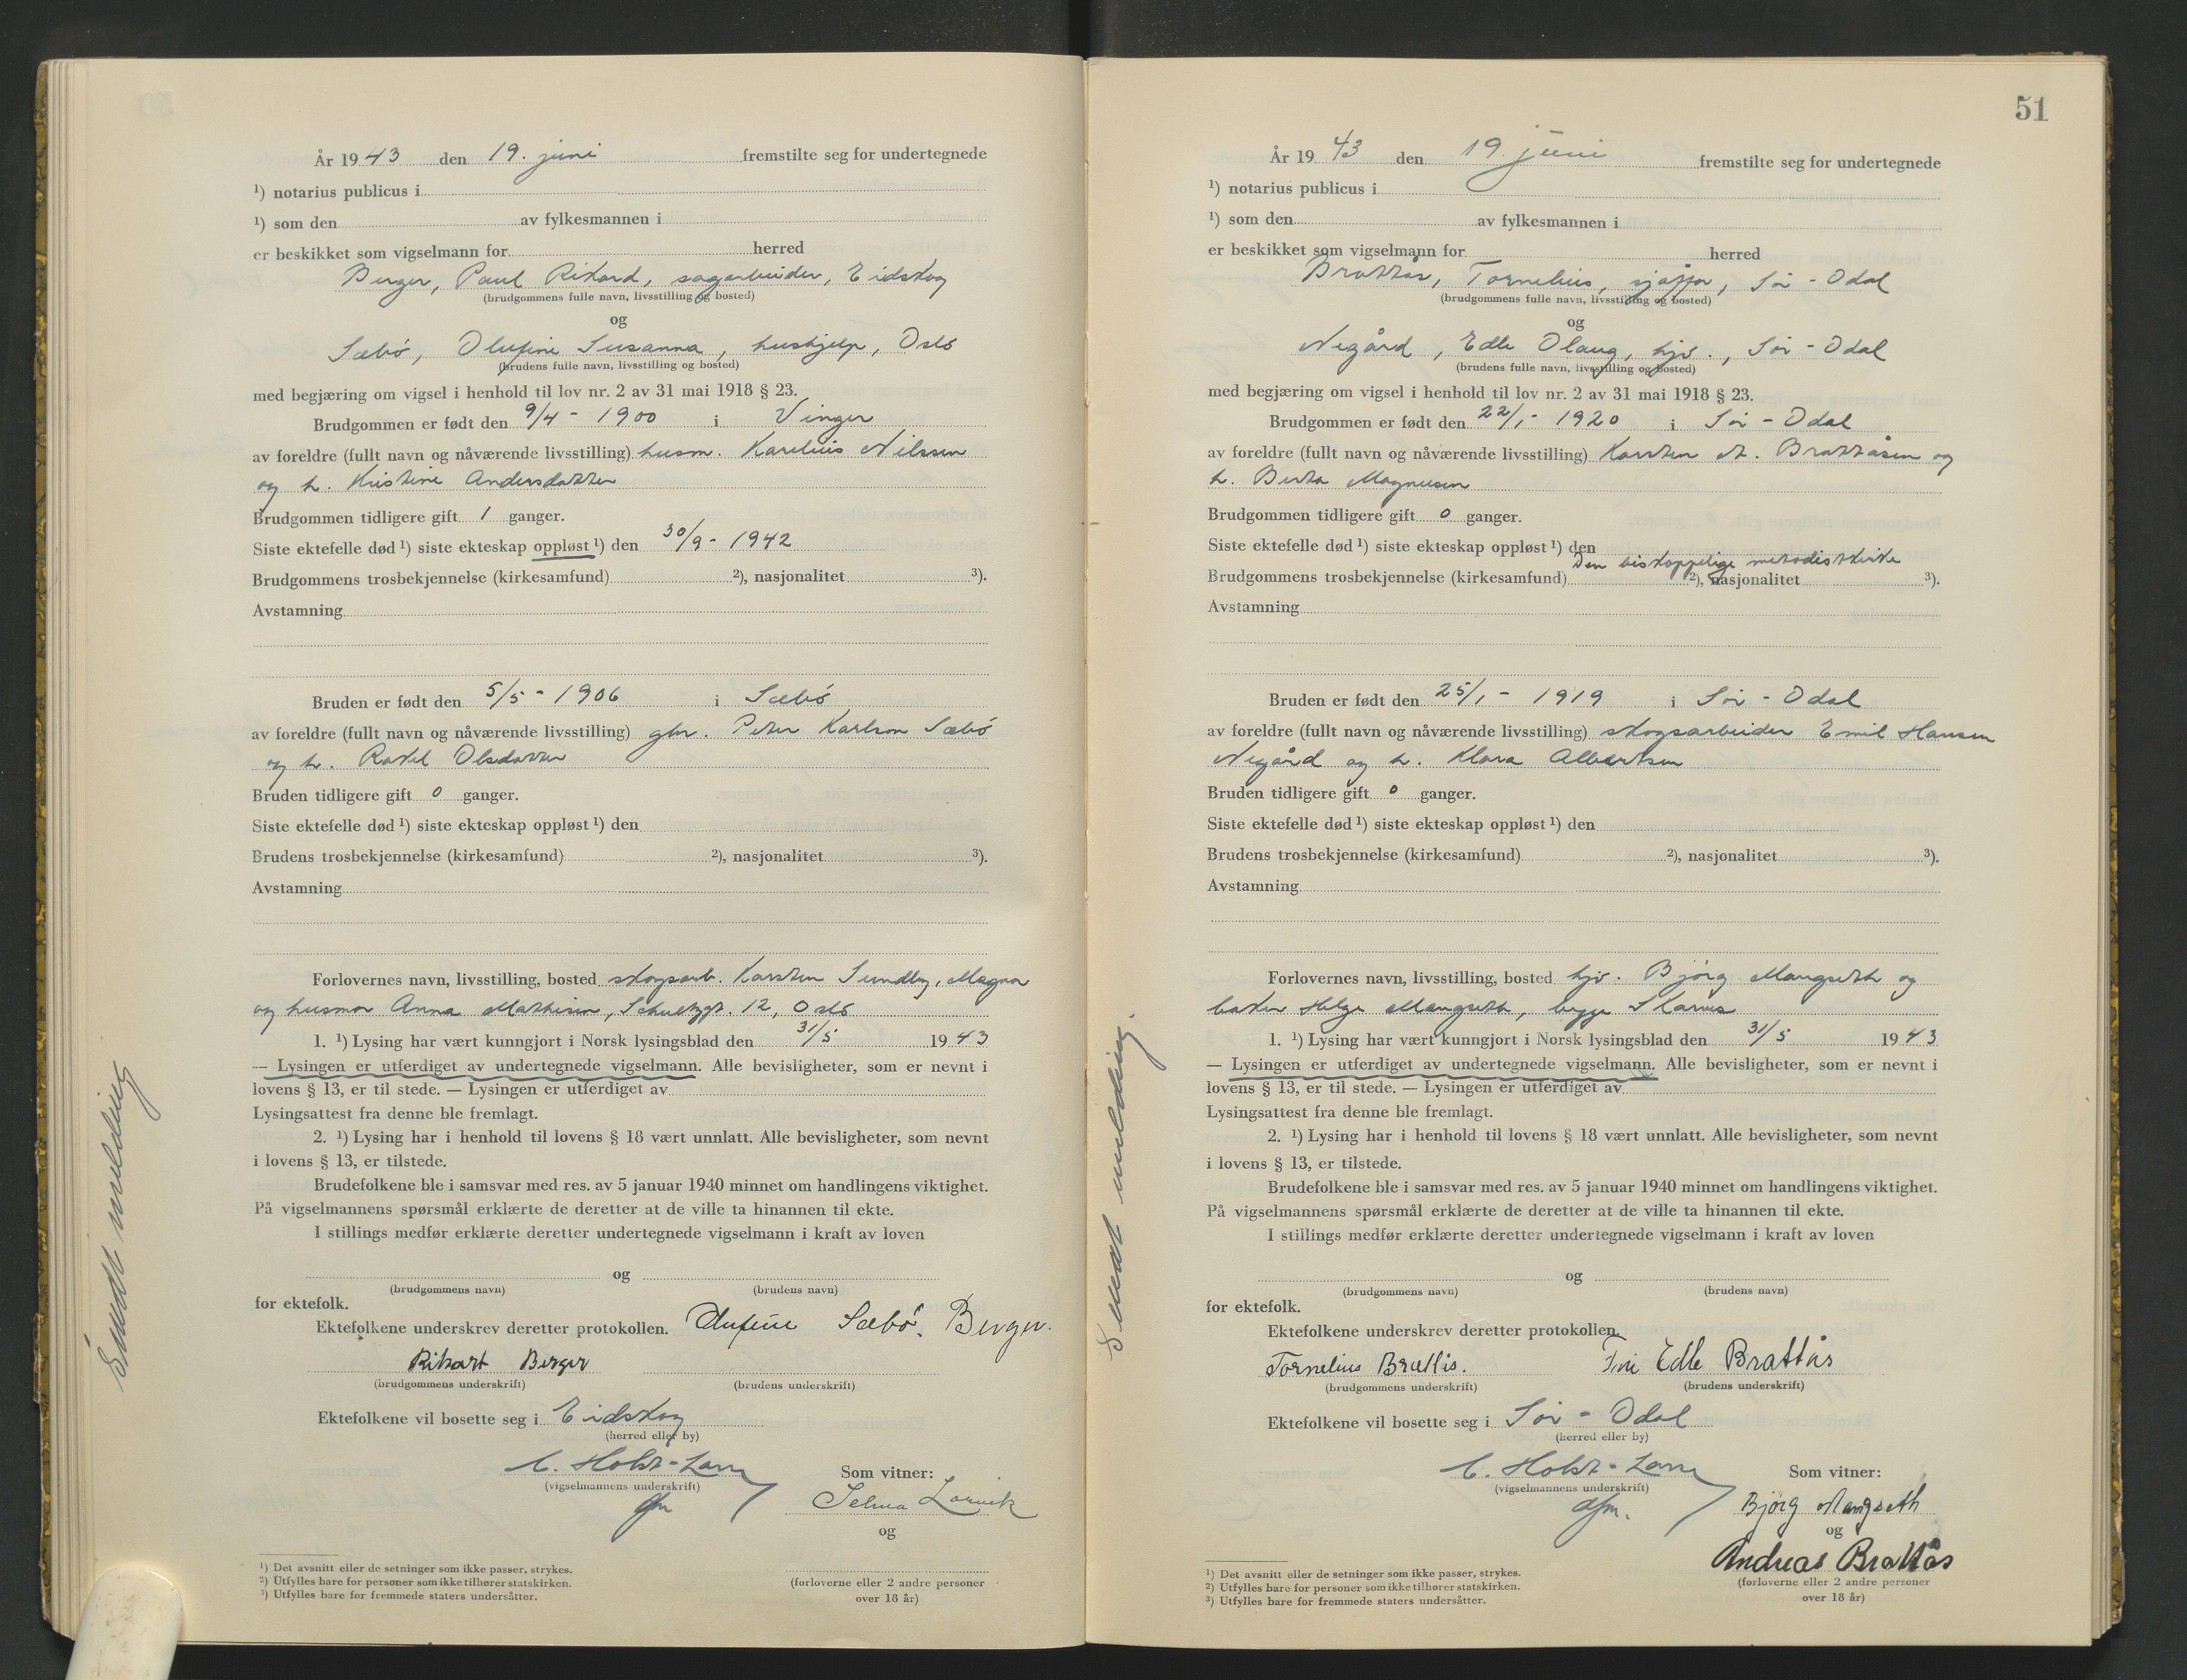 År 1943 den 19. juni fremstilte seg for undertegnede
¹) notarius publicus i
¹) som den av fylkesmannen i
er beskikket som vigselmann for herred
Berger, Paul Rikard, sagarbeider, Eidskog
(brudgommens fulle navn, livsstilling og bosted)
og
Sæbö, Olufine Susanna, hushjelp, Oslo
(brudens fulle navn, livsstilling og bosted)
med begjæring om vigsel i henhold til lov nr. 2 av 31 mai 1918 § 23.
Brudgommen er født den 9/4 - 1900 i Vinger
av foreldre (fullt navn og nåværende livsstilling) husm. Karelius Nilssen
og h. Kristine Andersdatter
Brudgommen tidligere gift 1 ganger.
Siste ektefelle død ¹) siste ekteskap oppløst ¹) den 30/9 - 1942
Brudgommens trosbekjennelse (kirkesamfund) ²), nasjonalitet ³).
Avstamning
Bruden er født den 5/5 - 1906 i Sæbö
av foreldre (fullt navn og nåværende livsstilling) gbr. Peter Karlson Sæbö
og h. Rakel Olsdatter
Bruden tidligere gift 0 ganger.
Siste ektefelle død ¹) siste ekteskap oppløst ¹) den
Brudens trosbekjennelse (kirkesamfund) ²), nasjonalitet ³).
Avstamning
Forlovernes navn, livsstilling, bosted skogsarb. Karsten Sundby, Magnor
og husmor Anna Mathisen, Schultzgt. 12, Oslo
1. ¹) Lysing har vært kunngjort i Norsk lysingsblad den 31/5 1943
— Lysingen er utferdiget av undertegnede vigselmann. Alle bevisligheter, som er nevnt i
lovens § 13, er til stede. — Lysingen er utferdiget av
Lysingsattest fra denne ble fremlagt.
2. ¹) Lysing har i henhold til lovens § 18 vært unnlatt. Alle bevisligheter, som nevnt
i lovens § 13, er tilstede.
Brudefolkene ble i samsvar med res. av 5 januar 1940 minnet om handlingens viktighet.
På vigselmannens spørsmål erklærte de deretter at de ville ta hinannen til ekte.
I stillings medfør erklærte deretter undertegnede vigselmann i kraft av loven
og
(brudgommens navn) (brudens navn)
for ektefolk.
Ektefolkene underskrev deretter protokollen. Olufine Sæbö. Berger.
Rikart Berger
(brudgommens underskrift) (brudens underskrift)
Ektefolkene vil bosette seg i Eidskog
(herred eller by)
C. Holst-Larsen
(vigselmannens underskrift)
Som vitner:
Selma Larvik
og
(forloverne eller 2 andre personer
over 18 år)
¹) Det avsnitt eller de setninger som ikke passer, strykes.
²) Utfylles bare for personer som ikke tilhører statskirken.
³) Utfylles bare for fremmede staters undersåtter.
Sendt melding
51
År 1943 den 19 juni fremstilte seg for undertegnede
¹) notarius publicus i
¹) som den av fylkesmannen i
er beskikket som vigselmann for herred
Brattås, Tornelius, sjåfør, Sör-Odal
(brudgommens fulle navn, livsstilling og bosted)
og
Negård, Edle Olaug, hjv., Sör-Odal
(brudens fulle navn, livsstilling og bosted)
med begjæring om vigsel i henhold til lov nr. 2 av 31 mai 1918 § 23.
Brudgommen er født den 22/1 - 1920 i Sör-Odal
av foreldre (fullt navn og nåværende livsstilling) Karsten A. Brattåsen og
h. Berta Magnusen
Brudgommen tidligere gift 0 ganger.
Siste ektefelle død ¹) siste ekteskap oppløst ¹) den
Den biskoppelige metodistkirke
Brudgommens trosbekjennelse (kirkesamfund) ²), nasjonalitet ³).
Avstamning
Bruden er født den 25/1 - 1919 i Sör-Odal
av foreldre (fullt navn og nåværende livsstilling) skogsarbeider Emil Hansen
Negård og h. Klara Albertsen
Bruden tidligere gift 0 ganger.
Siste ektefelle død ¹) siste ekteskap oppløst ¹) den
Brudens trosbekjennelse (kirkesamfund) ²), nasjonalitet ³).
Avstamning
Forlovernes navn, livsstilling, bosted hjv. Bjørg Mangseth og
baker Helge Mangseth, begge Skarnes
1. ¹) Lysing har vært kunngjort i Norsk lysingsblad den 31/5 1943
— Lysingen er utferdiget av undertegnede vigselmann. Alle bevisligheter, som er nevnt i
lovens § 13, er til stede. — Lysingen er utferdiget av
Lysingsattest fra denne ble fremlagt.
2. ¹) Lysing har i henhold til lovens § 18 vært unnlatt. Alle bevisligheter, som nevnt
i lovens § 13, er tilstede.
Brudefolkene ble i samsvar med res. av 5 januar 1940 minnet om handlingens viktighet.
På vigselmannens spørsmål erklærte de deretter at de ville ta hinannen til ekte.
I stillings medfør erklærte deretter undertegnede vigselmann i kraft av loven
og
(brudgommens navn) (brudens navn)
for ektefolk.
Ektefolkene underskrev deretter protokollen.
Tornelius Brattås. Edle Brattås
(brudgommens underskrift) (brudens underskrift)
Ektefolkene vil bosette seg i Sör-Odal
(herred eller by)
C. Holst-Larsen
(vigselmannens underskrift)
Som vitner:
Bjørg Mangseth
og
Andreas Brattås
(forloverne eller 2 andre personer
over 18 år)
¹) Det avsnitt eller de setninger som ikke passer, strykes.
²) Utfylles bare for personer som ikke tilhører statskirken.
³) Utfylles bare for fremmede staters undersåtter.
Sendt melding.